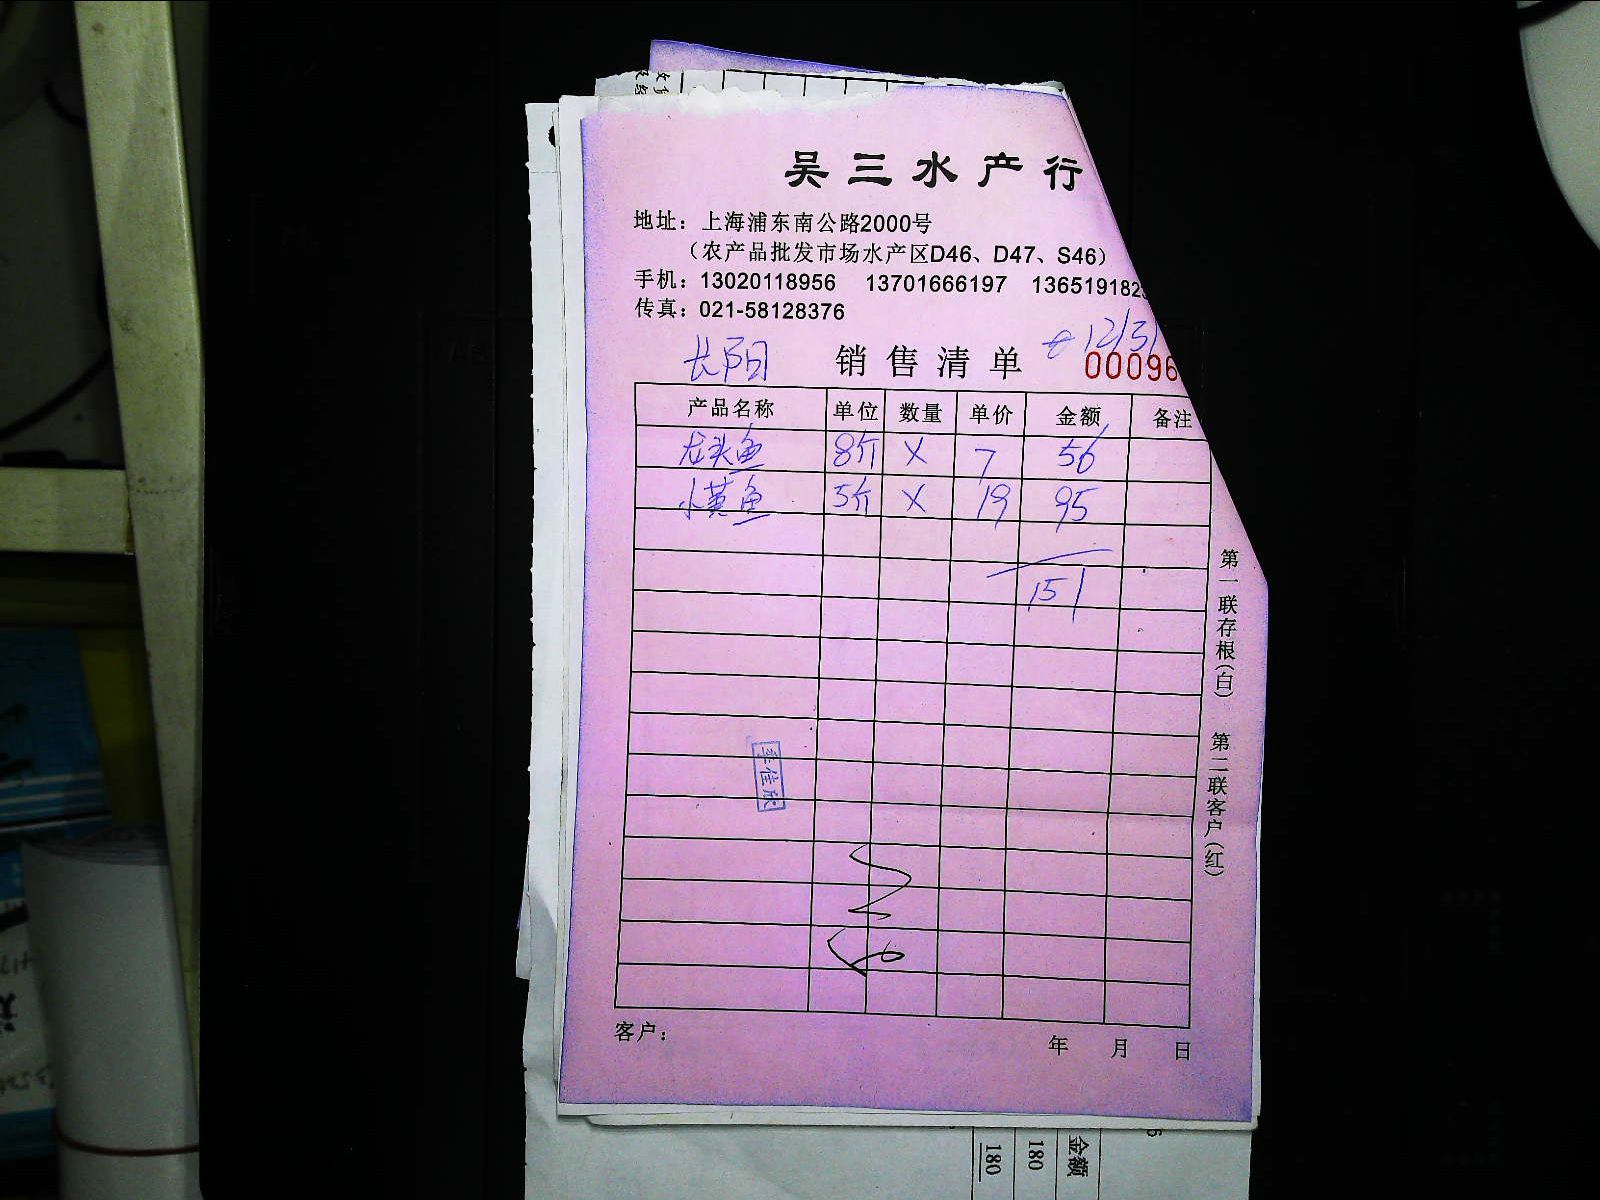 吴三水产行
地址：上海浦东南公路2000号
（农产品批发市场水产区D46、D47、S46）
手机：13020118956 13701666197 1365191823
传真：021-58128376
12/31
长阳 销售清单 00096
产品名称 单位 数量 单价 金额 备注
龙头鱼 8斤 X 7 56
小黄鱼 5斤 X 19 95
151
第一联存根（白） 第二联客户（红）
李佳欣
客户： 年 月 日
金额
180
180